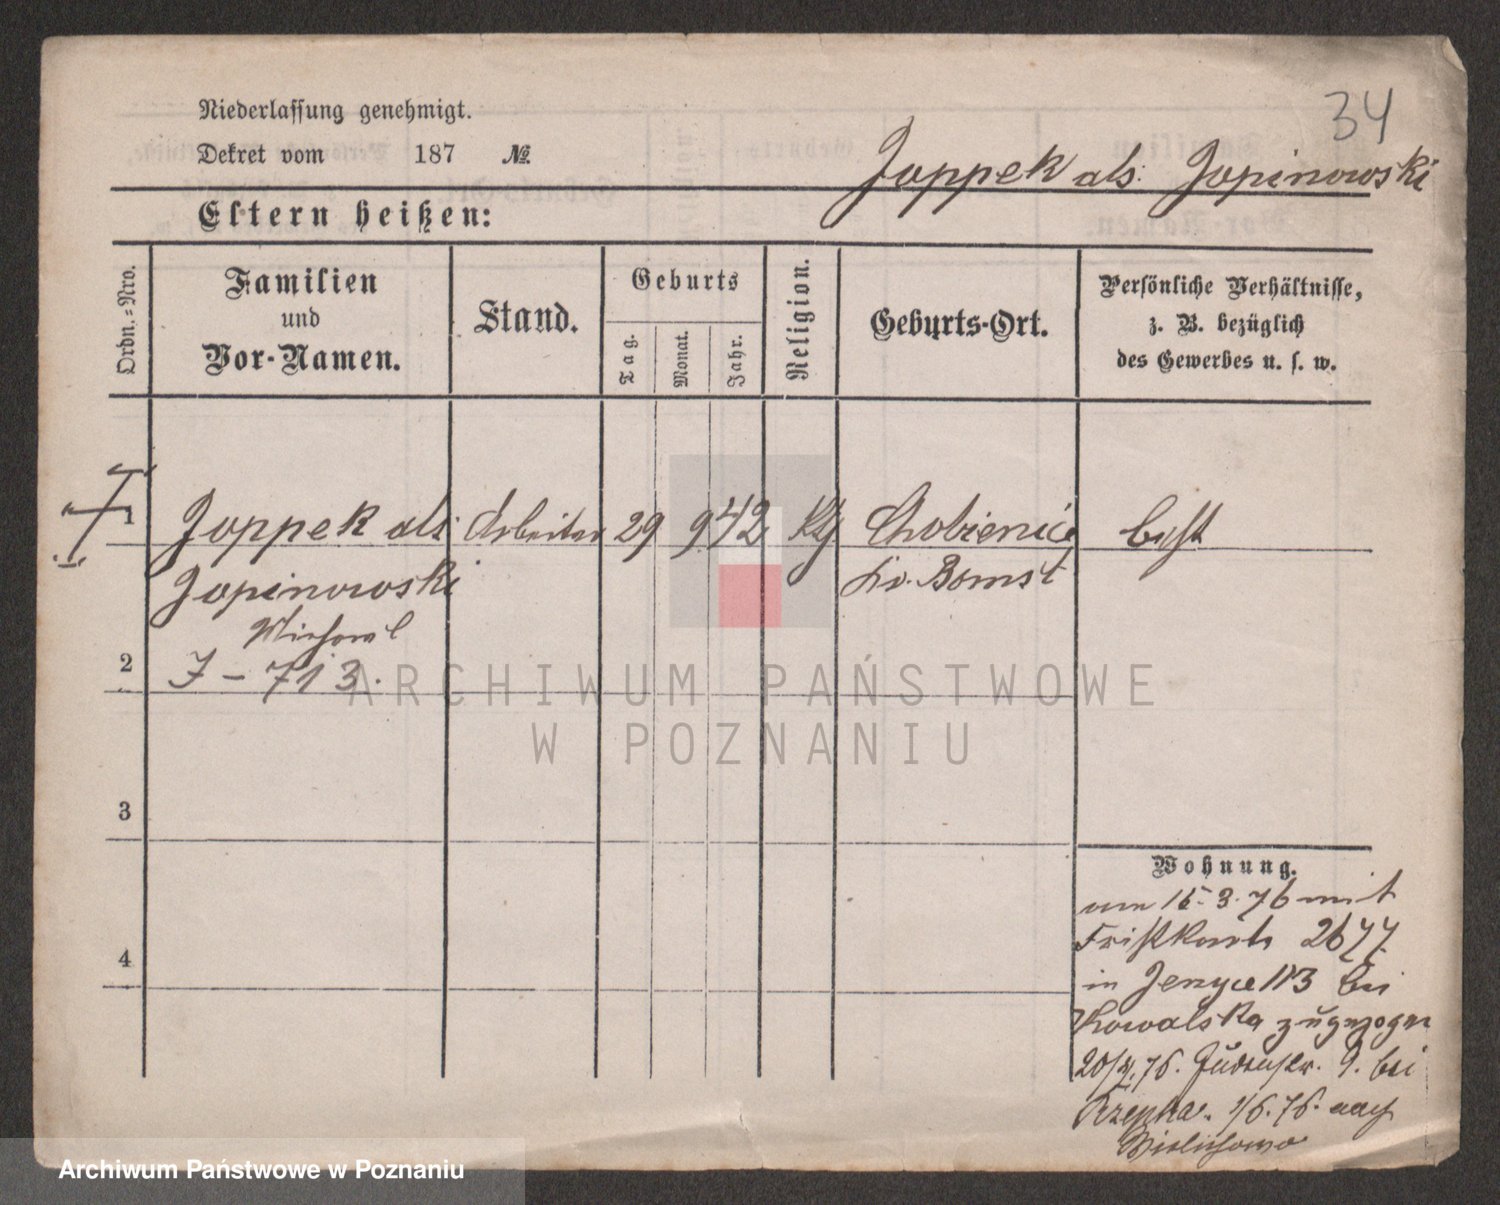 34
Niederlassung genehmigt.
Dekret vom 187 №
Joppek als Jopinowski
Eltern heißen:
Ordn.-Nro.
Familien
und
Vor-Namen.
Stand.
Geburts
Tag.
Monat.
Jahr.
Religion.
Geburts-Ort.
Persönliche Verhältnisse,
z. B. bezüglich
des Gewerbes u. s. w.
1 Joppek als Arbeiter 29 9 42 Chobienice
Jopinowski Kr. Bomst
Michael
2 J - 713.
ARCHIWUM PAŃSTWOWE
W POZNANIU
3
Wohnung.
am 15.3.76 mit
4 Fristkarte 2677
in Jerzyce 113 bei
Kowalska zugezogen
20/4.76. Judenstr. 9. bei
Rzepka. 1/6.76. nach
Wielichowo
Archiwum Państwowe w Poznaniu